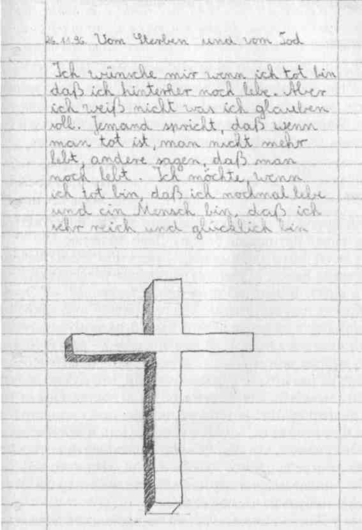 26.11.96 Vom Sterben und vom Tod
Ich wünsche mir wenn ich tot bin
daß ich hinterher noch lebe. Aber
ich weiß nicht was ich glauben
soll. Jemand spricht, daß wenn
man tot ist, man nicht mehr
lebt, andere sagen, daß man
noch lebt. Ich möchte, wenn
ich tot bin, daß ich nochmal lebe
und ein Mensch bin, daß ich
sehr reich und glücklich bin